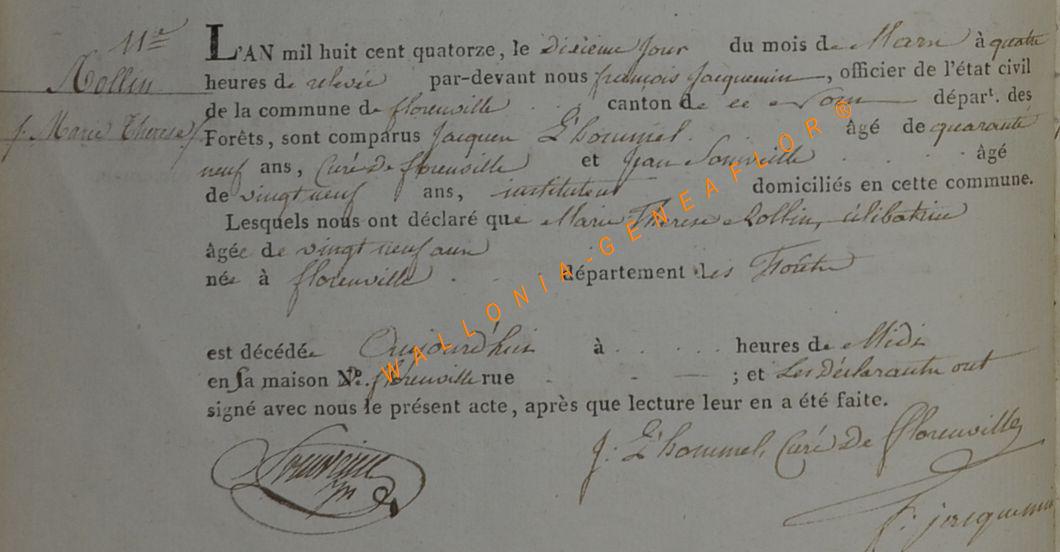 11e
Rollin
f. Marie Therese
L'AN mil huit cent quatorze, le dixieme jour du mois de Mars à quatre
heures de relevée par-devant nous françois Jacquemin, officier de l'état civil
de la commune de florenville canton de ce Nom départ. des
Forêts, sont comparus Jacques L'hommel. âgé de quarante
neuf ans, Curé de florenville et Jean âgé
de vingt neuf ans, instituteur domiciliés en cette commune.
Lesquels nous ont déclaré que Marie Therese Rollin, célibataire
âgée de vingt neuf ans
née à florenville département des Forêts
est décédée Aujourd'hui à heures de Midi
en sa maison No. florenville rue ; et Les Déclarants ont
signé avec nous le présent acte, après que lecture leur en a été faite.
J: L'hommel, Curé De florenville
f: jacquemin
WALLONIA-GENEAFLOR®